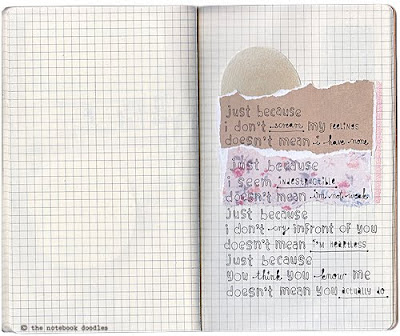 just because
i don't scream my feelings
doesn't mean i have none
just because
i seem indestructible
doesn't mean i'm not weak
just because
i don't cry infront of you
doesn't mean i'm heartless
just because
you think you know me
doesn't mean you actually do
© the notebook doodles